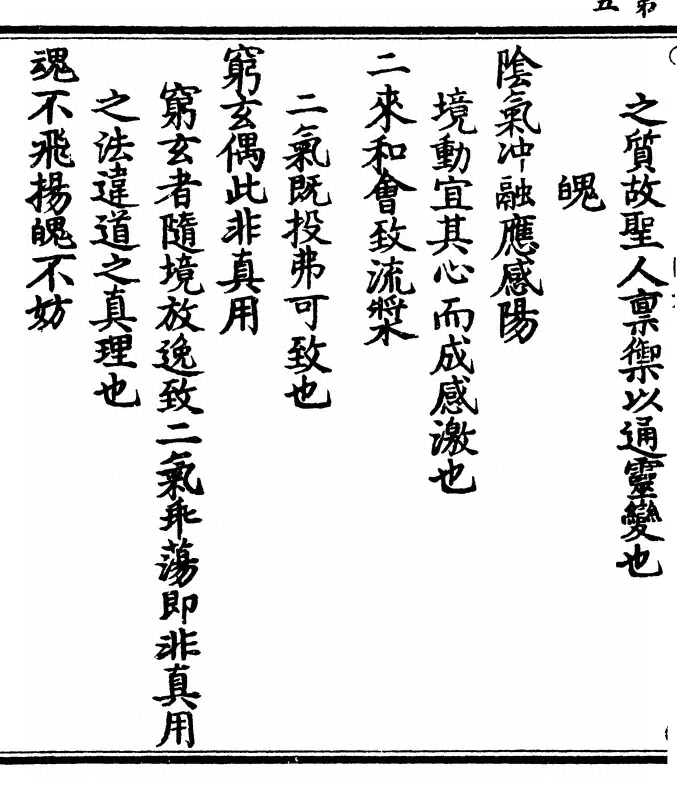 之質故聖人禀禦以通靈變也
魄
陰氣冲融應感陽
境動宜其心而成感激也
二來和會致流漿
二氣既投弗可致也
窮玄偶此非真用
窮玄者隨境放逸致二氣乖蕩即非真用
之法違道之真理也
魂不飛揚魄不妨